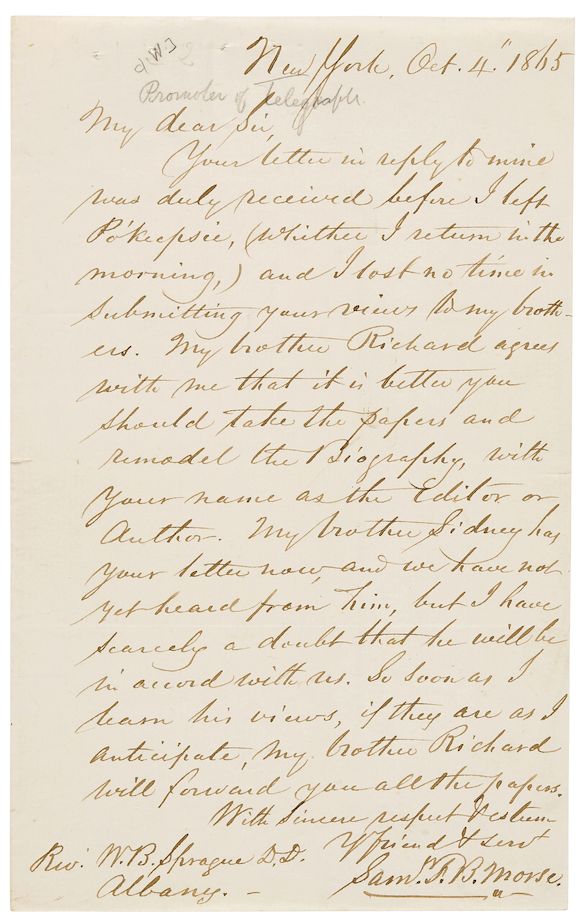 New York, Oct. 4." 1865
Promoter of Telegraph.
My dear Sir,
Your letter in reply to mine
was duly received before I left
Po'keepsie, (whither I return in the
morning,) and I lost no time in
submitting your views to my broth-
ers. My brother Richard agrees
with me that it is better you
should take the papers and
remodel the Biography, with
your name as the Editor or
Author. My brother Sidney has
your letter now, and we have not
yet heard from him, but I have
scarcely a doubt that he will be
in accord with us. So soon as I
learn his views, if they are as I
anticipate, my brother Richard
will forward you all the papers.
With sincere respect & esteem
Yr friend & servt
Rev. W. B. Sprague D.D. Saml. F. B. Morse.
Albany. -